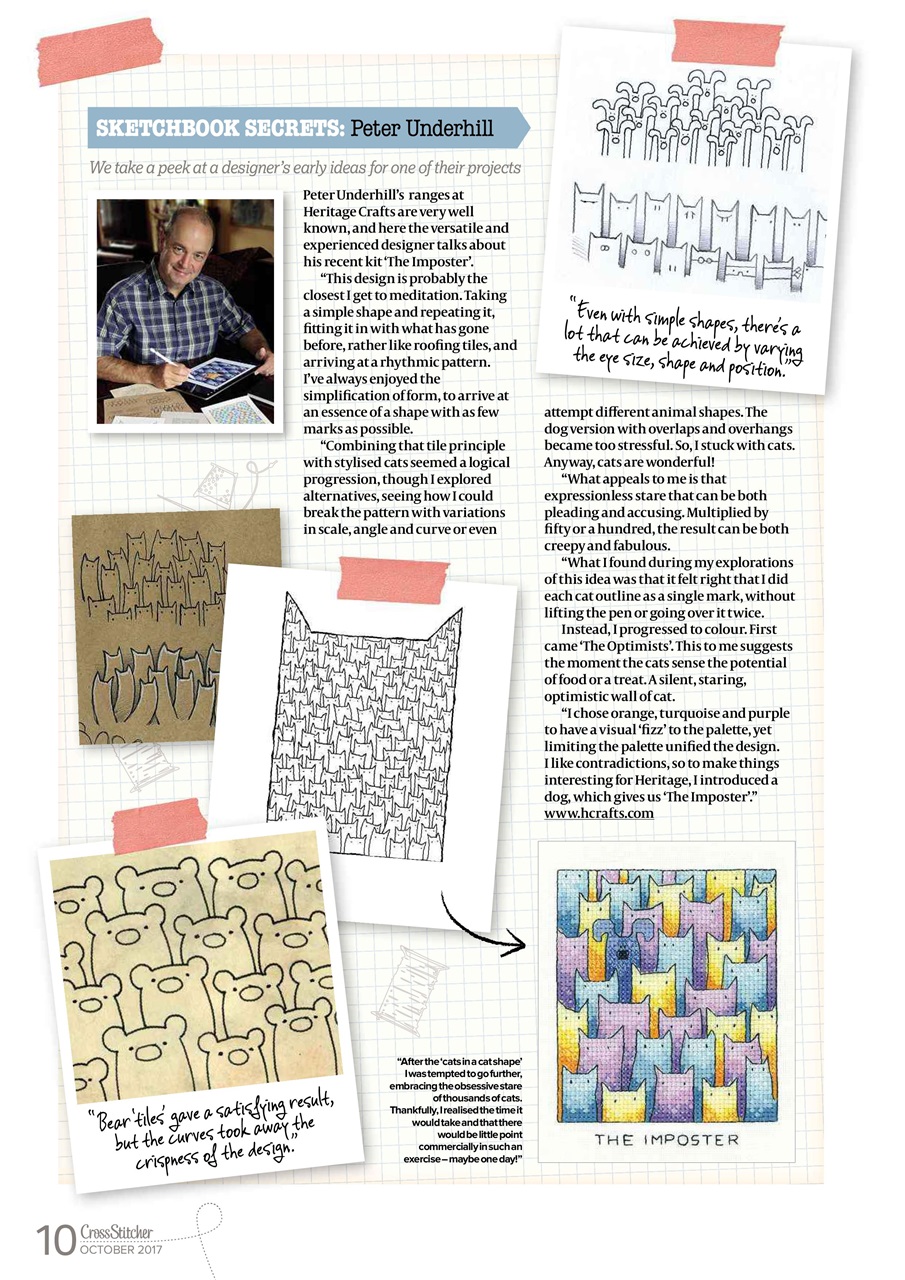 SKETCHBOOK SECRETS: Peter Underhill
We take a peek at a designer's early ideas for one of their projects
Peter Underhill's ranges at
Heritage Crafts are very well
known, and here the versatile and
experienced designer talks about
his recent kit 'The Imposter'.
"This design is probably the
closest I get to meditation. Taking
a simple shape and repeating it,
fitting it in with what has gone
before, rather like roofing tiles, and
arriving at a rhythmic pattern.
I've always enjoyed the
simplification of form, to arrive at
an essence of a shape with as few
marks as possible.
"Combining that tile principle
with stylised cats seemed a logical
progression, though I explored
alternatives, seeing how I could
break the pattern with variations
in scale, angle and curve or even
"Even with simple shapes, there's a
lot that can be achieved by varying
the eye size, shape and position."
attempt different animal shapes. The
dog version with overlaps and overhangs
became too stressful. So, I stuck with cats.
Anyway, cats are wonderful!
"What appeals to me is that
expressionless stare that can be both
pleading and accusing. Multiplied by
fifty or a hundred, the result can be both
creepy and fabulous.
"What I found during my explorations
of this idea was that it felt right that I did
each cat outline as a single mark, without
lifting the pen or going over it twice.
Instead, I progressed to colour. First
came 'The Optimists'. This to me suggests
the moment the cats sense the potential
of food or a treat. A silent, staring,
optimistic wall of cat.
"I chose orange, turquoise and purple
to have a visual 'fizz' to the palette, yet
limiting the palette unified the design.
I like contradictions, so to make things
interesting for Heritage, I introduced a
dog, which gives us 'The Imposter'."
www.hcrafts.com
"Bear 'tiles' gave a satisfying result,
but the curves took away the
crispness of the design."
"After the 'cats in a cat shape'
I was tempted to go further,
embracing the obsessive stare
of thousands of cats.
Thankfully, I realised the time it
would take and that there
would be little point
commercially in such an
exercise – maybe one day!"
THE IMPOSTER
10 CrossStitcher
OCTOBER 2017